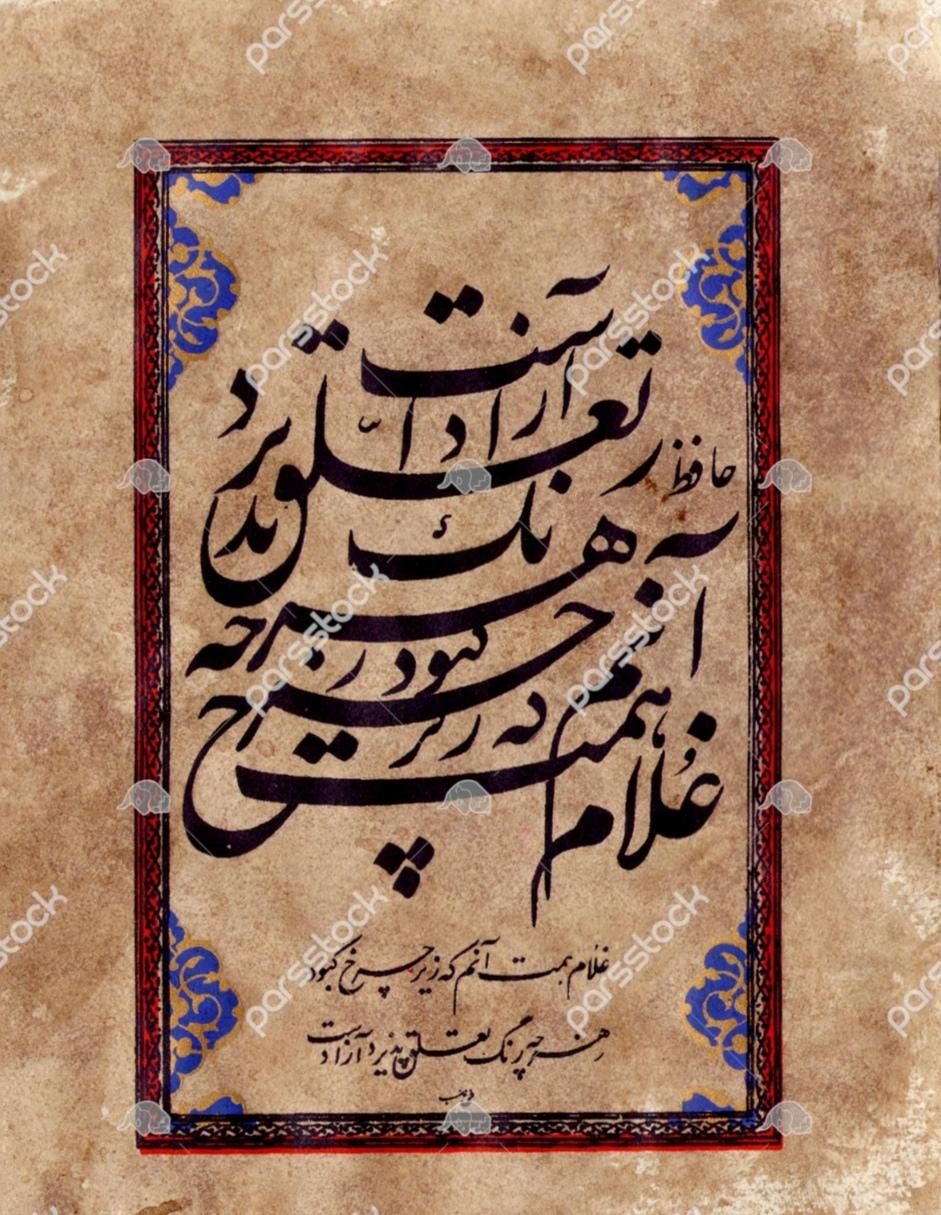 حافظ
غُلام همت آنم که زیر چرخ کبود
ز هر چه رنگ تعلّق پذیرد آزاد است
غلام همت آنم که زیر چرخ کبود
ز هر چه رنگ تعلق پذیرد آزاد است
parsstock